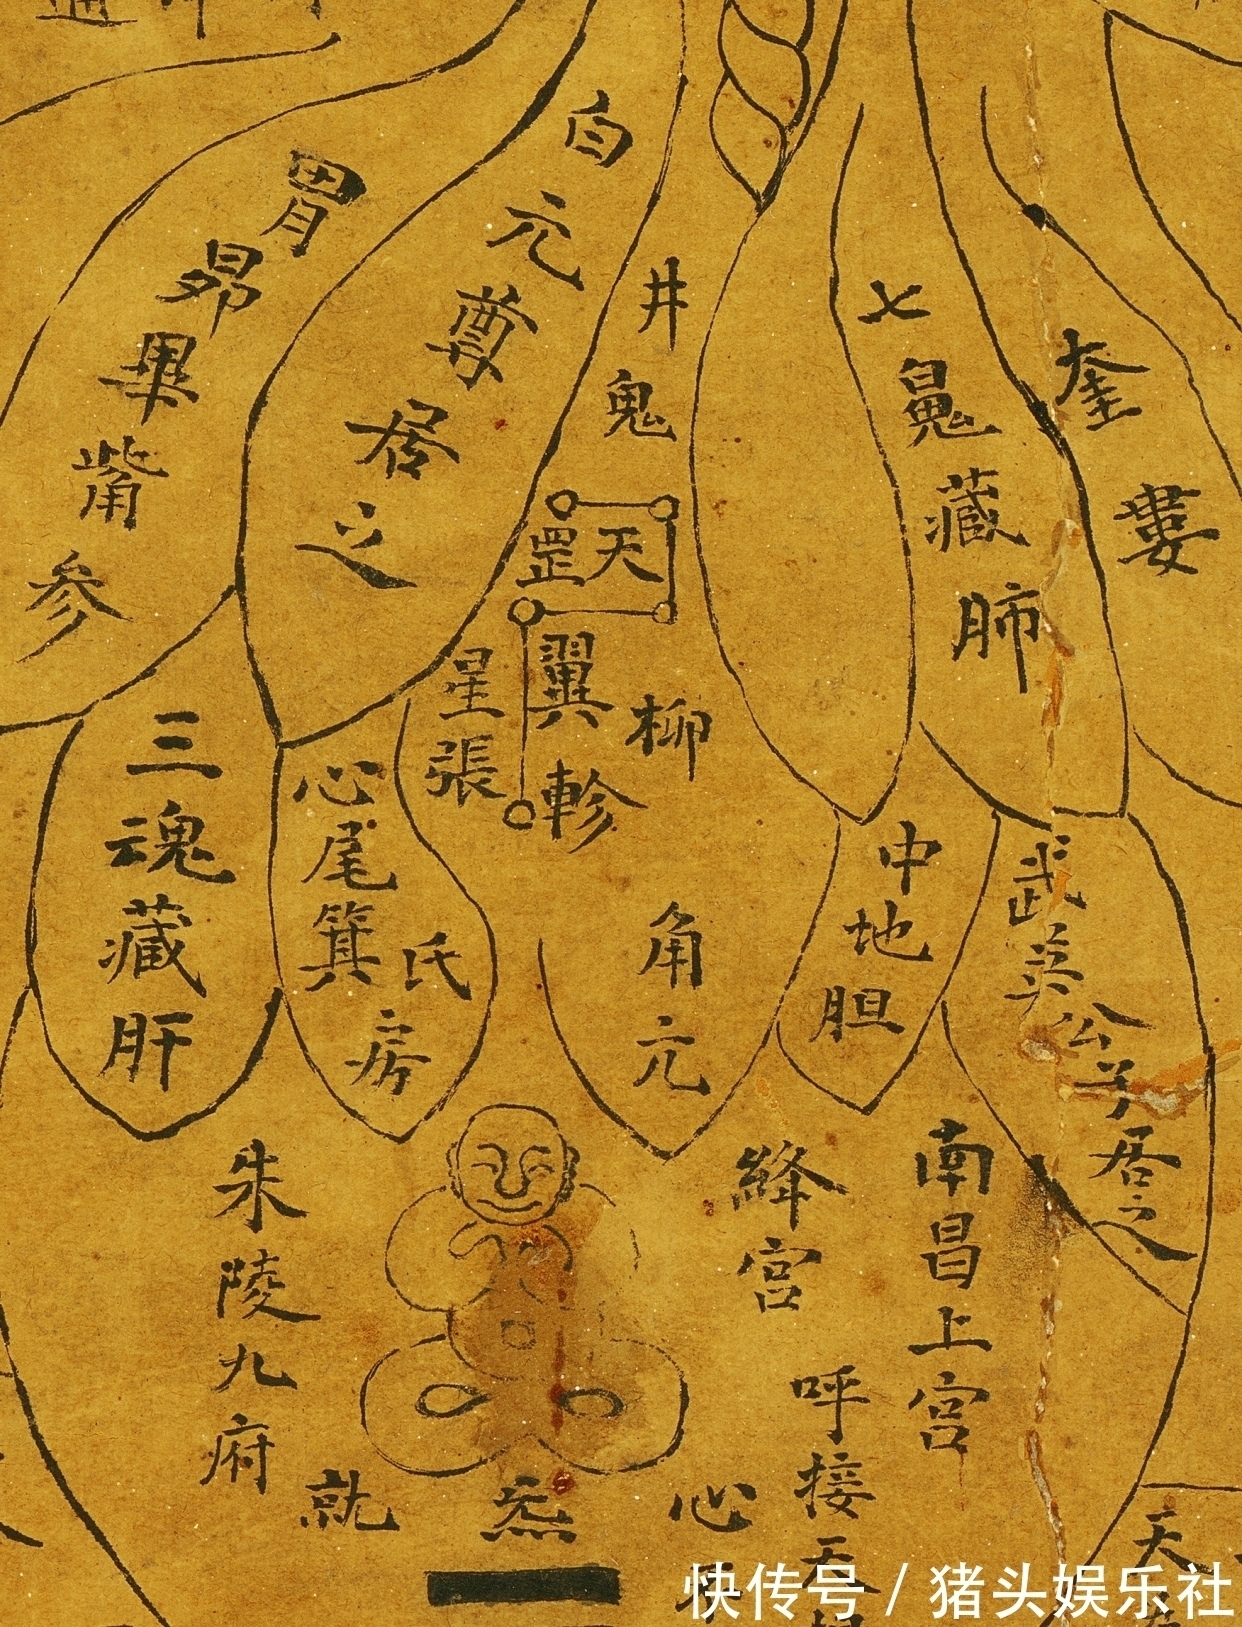 胃昴畢觜参
白元尊居之
井鬼
天罡
七鬼藏肺
奎婁
翼軫
柳
星張
三魂藏肝
心尾箕
氐房
角亢
中地胆
武英公子居之
朱陵九府
絳宮
南昌上宮
呼接天
就
炁
心
天
快传号 / 猪头娱乐社